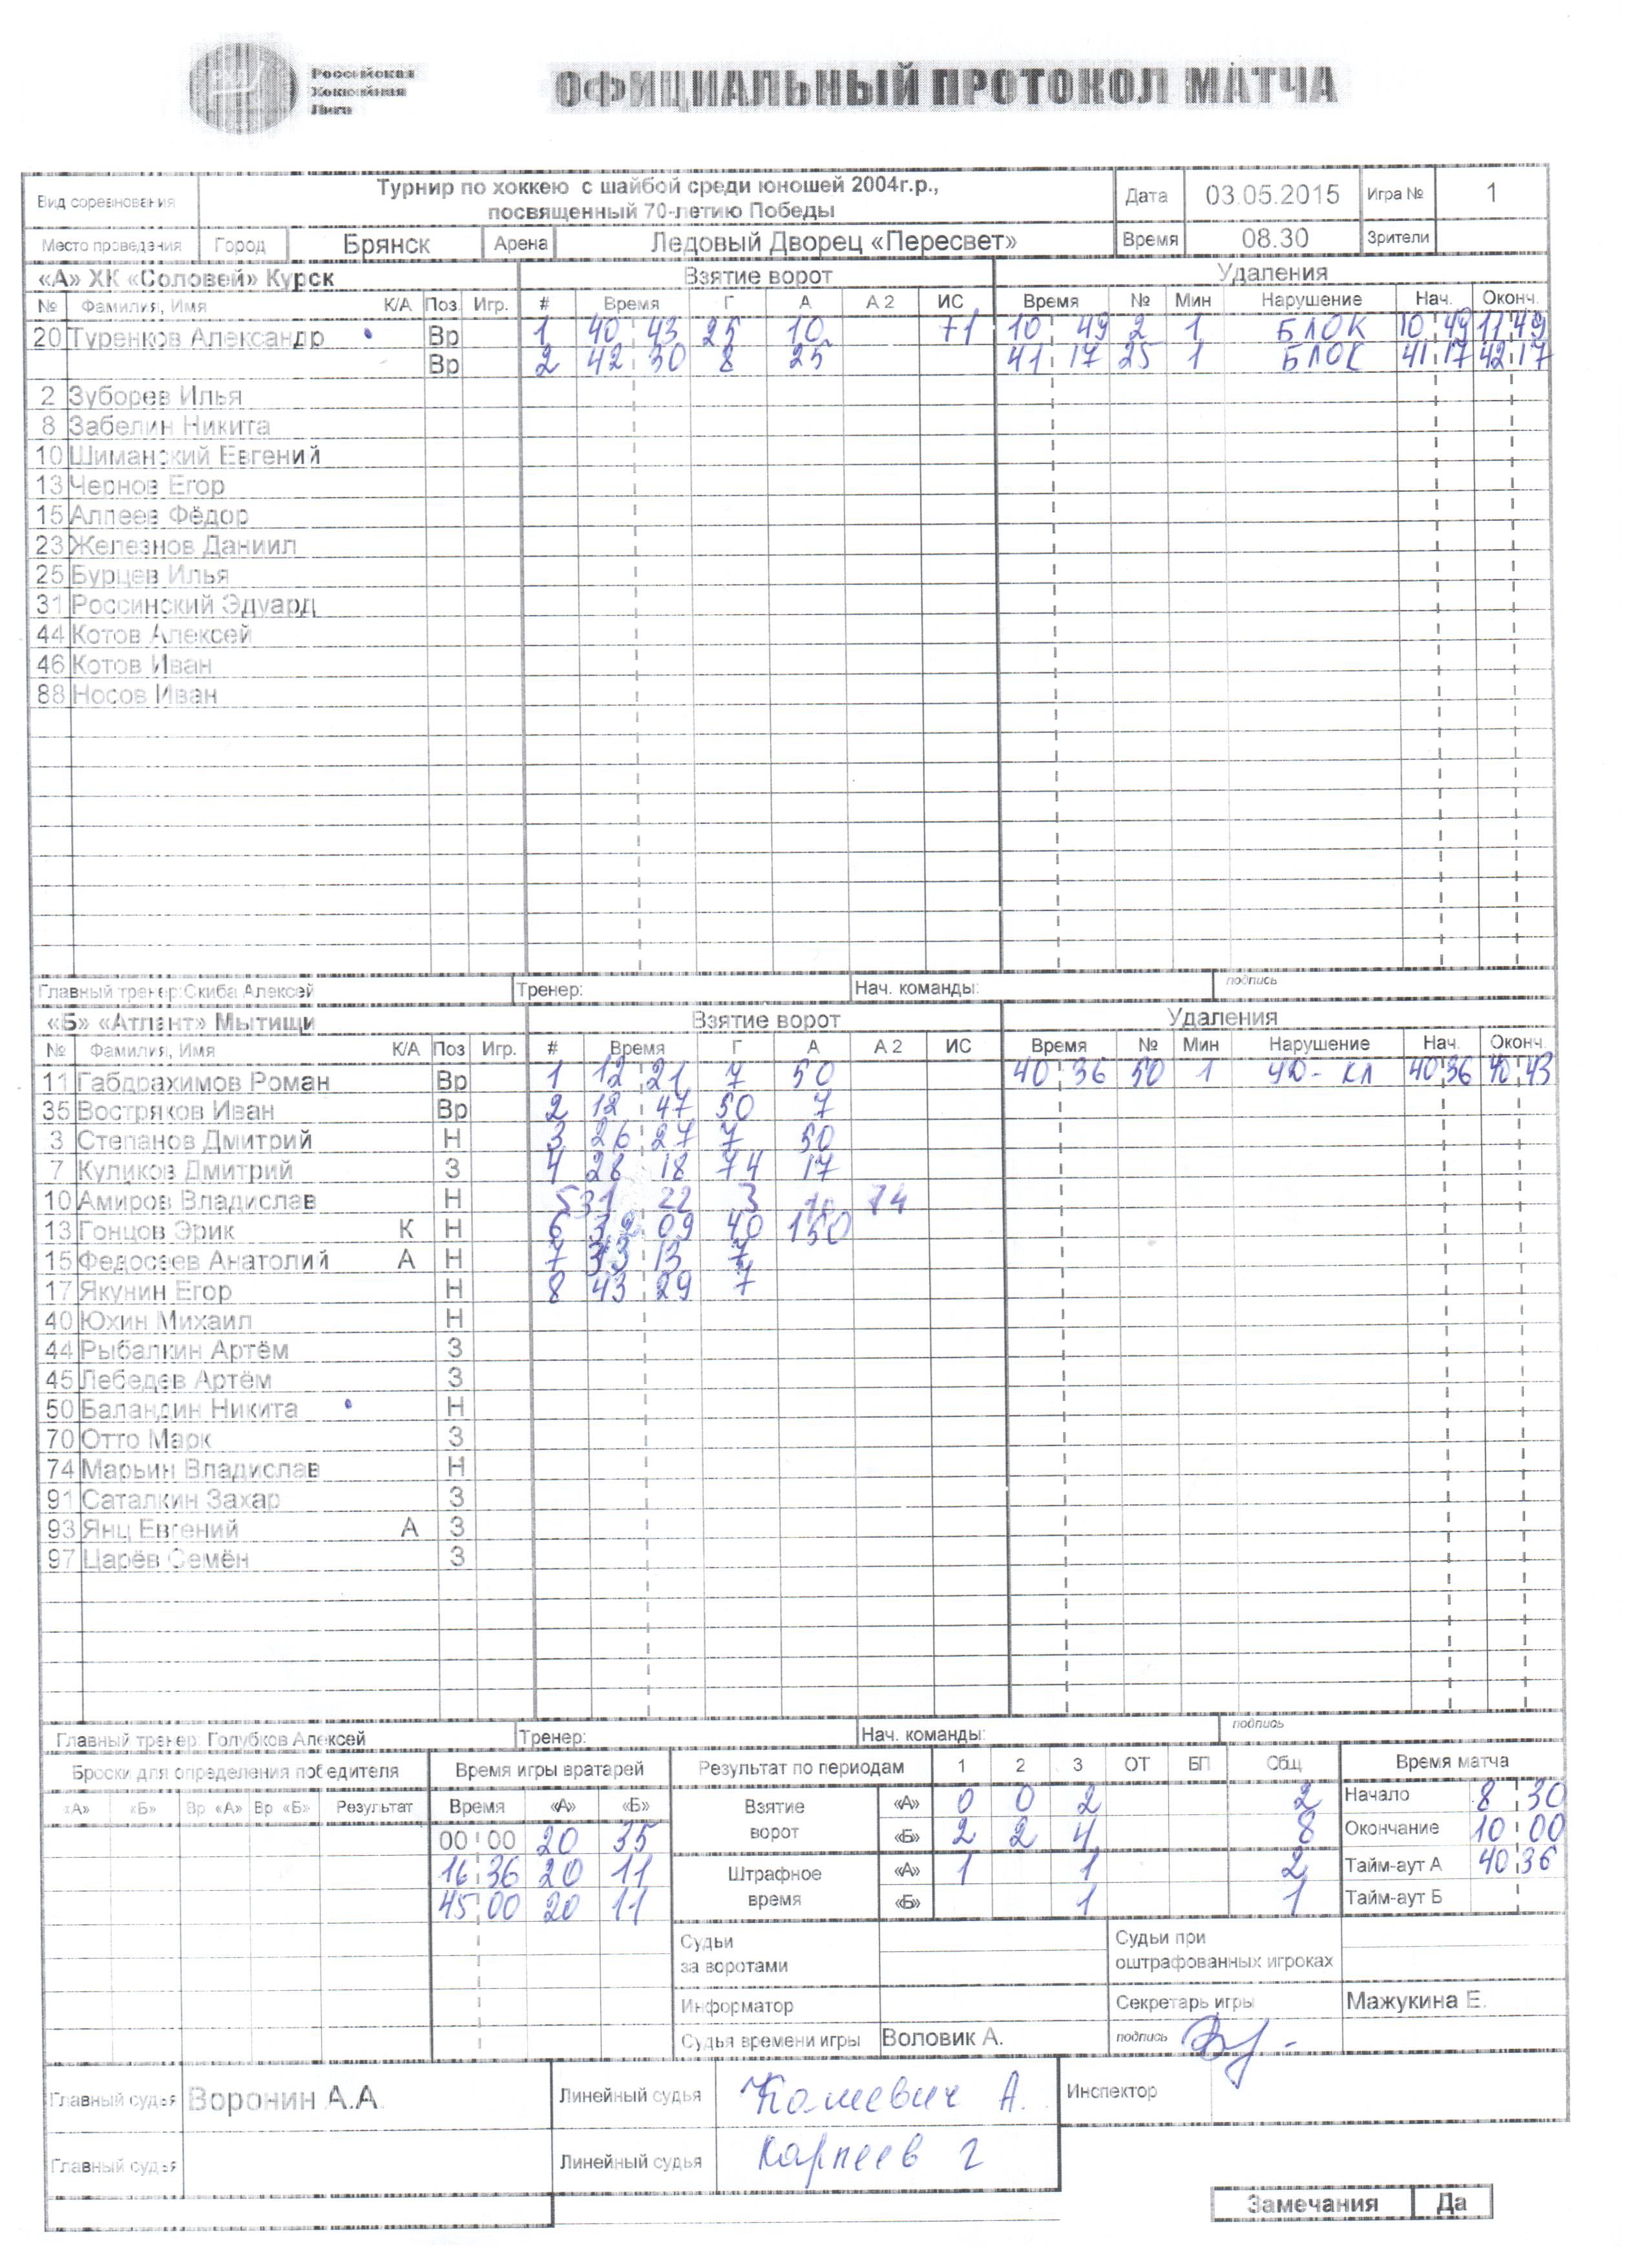 Российская
Хоккейная
Лига
ОФИЦИАЛЬНЫЙ ПРОТОКОЛ МАТЧА
Вид соревнования Турнир по хоккею с шайбой среди юношей 2004г.р., посвященный 70-летию Победы Дата 03.05.2015 Игра № 1
Место проведения Город Брянск Арена Ледовый Дворец «Пересвет» Время 08.30 Зрители
«А» ХК «Соловей» Курск Взятие ворот Удаления
№ Фамилия, Имя К/А Поз Игр. # Время Г А А 2 ИС Время № Мин Нарушение Нач. Оконч.
20 Туренков Александр • Вр 1 40 43 25 10 +1 10 49 2 1 БЛОК 10 49 11 49
Вр 2 42 30 8 25 41 17 25 1 БЛОК 41 17 42 17
2 Зуборев Илья
8 Забелин Никита
10 Шиманский Евгений
13 Чернов Егор
15 Алпеев Фёдор
23 Железнов Даниил
25 Бурцев Илья
31 Россинский Эдуард
44 Котов Алексей
46 Котов Иван
88 Носов Иван
Главный тренер: Скиба Алексей Тренер: Нач. команды: подпись
«Б» «Атлант» Мытищи Взятие ворот Удаления
№ Фамилия, Имя К/А Поз Игр. # Время Г А А 2 ИС Время № Мин Нарушение Нач. Оконч.
11 Габдрахимов Роман Вр 1 12 21 7 50 40 36 50 1 УД-КЛ 40 36 40 43
35 Востряков Иван Вр 2 12 47 50 7
3 Степанов Дмитрий Н 3 26 27 7 50
7 Куликов Дмитрий З 4 28 18 74 17
10 Амиров Владислав Н 5 31 22 3 74
13 Гонцов Эрик К Н 6 32 09 40
15 Федосеев Анатолий А Н 7 33 13 7
17 Якунин Егор Н 8 43 29 7
40 Юхин Михаил Н
44 Рыбалкин Артём З
45 Лебедев Артём З
50 Баландин Никита • Н
70 Отто Марк З
74 Марьин Владислав Н
91 Саталкин Захар З
93 Янц Евгений А З
97 Царёв Семён З
Главный тренер: Голубков Алексей Тренер: Нач. команды: подпись
Броски для определения победителя Время игры вратарей Результат по периодам 1 2 3 ОТ БП Общ Время матча
«А» «Б» Вр «А» Вр «Б» Результат Время «А» «Б» Взятие ворот «А» 0 0 2 2 Начало 8 30
00 00 20 35 «Б» 2 2 4 8 Окончание 10 00
16 36 20 11 Штрафное время «А» 1 1 2 Тайм-аут А 40 36
45 00 20 11 «Б» 1 1 Тайм-аут Б
Судьи за воротами Судьи при оштрафованных игроках
Информатор Секретарь игры Мажукина Е.
Судья времени игры Воловик А. подпись
Главный судья Воронин А.А. Линейный судья А. Инспектор
Главный судья Линейный судья Карпеев Г
Замечания Да